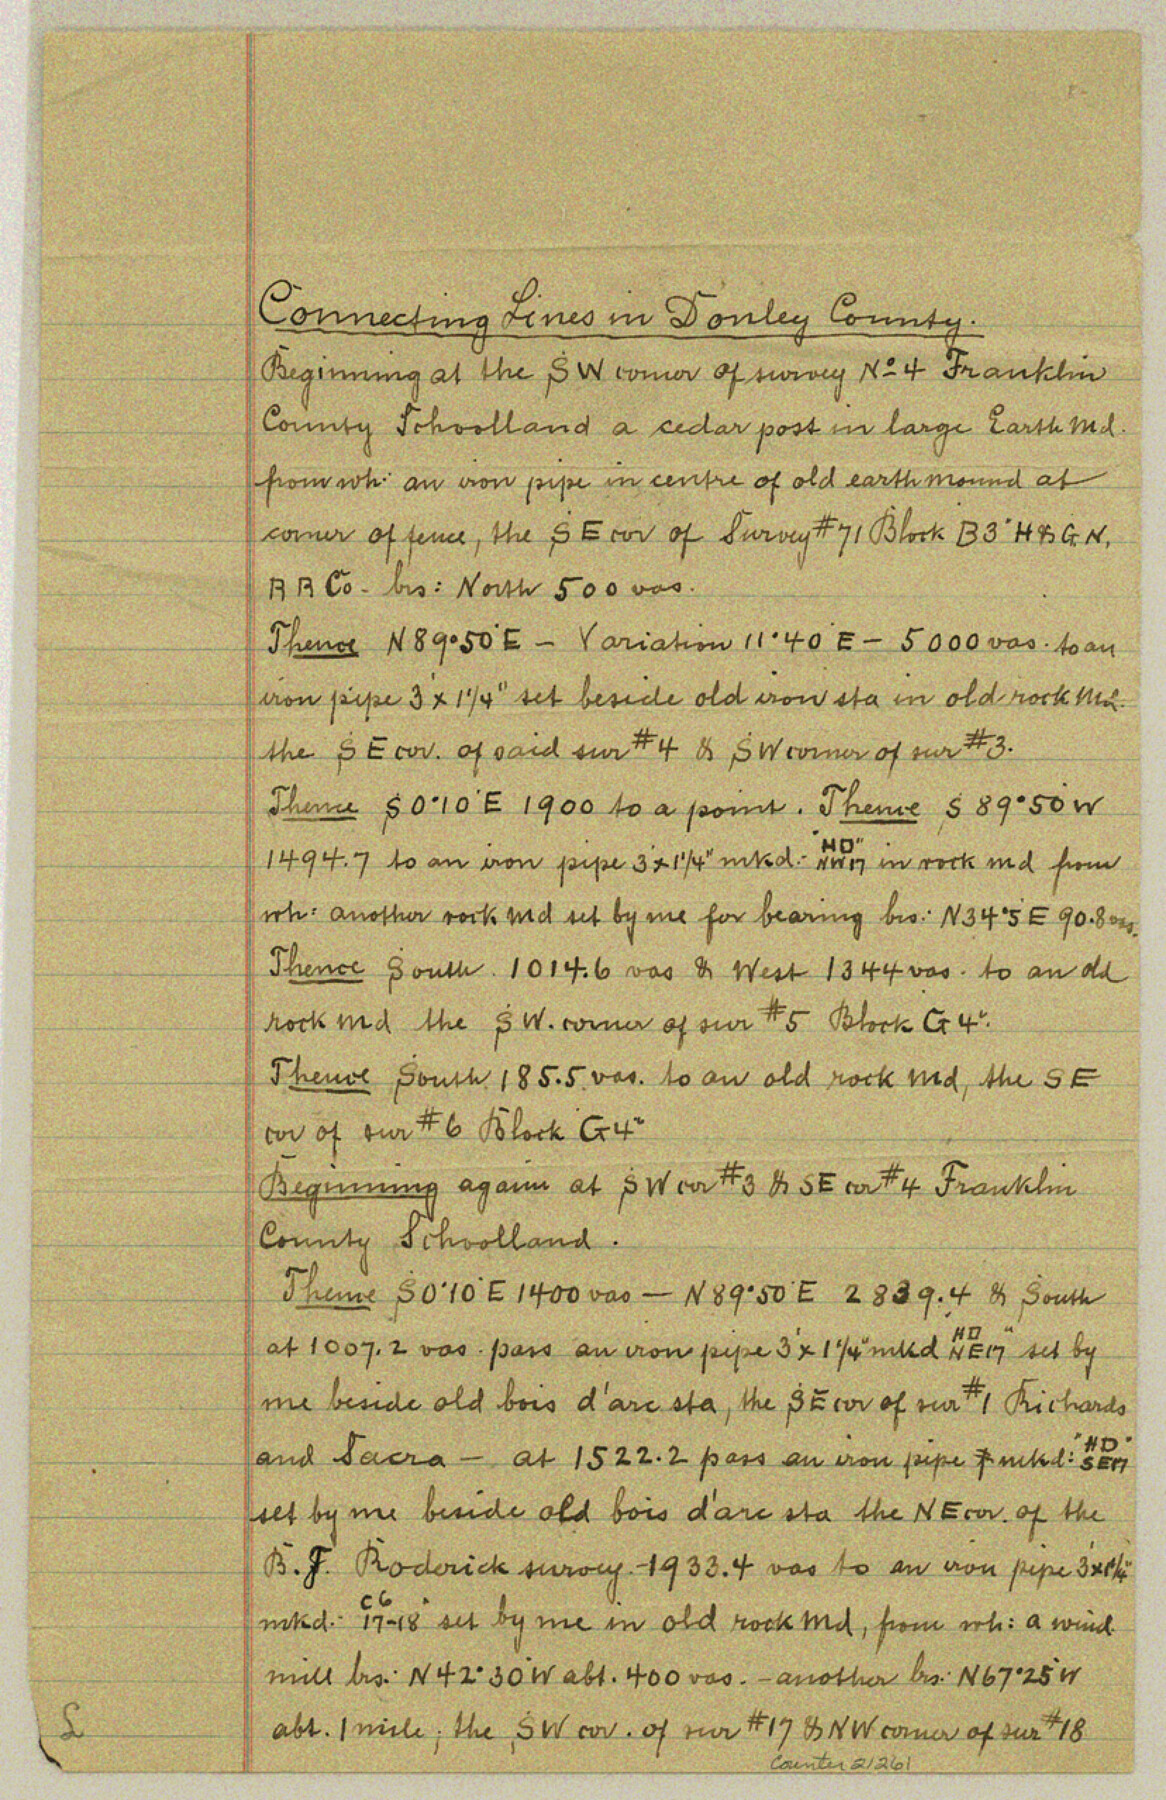 Connecting Lines in Donley County.
Beginning at the SW corner of survey No 4 Franklin
County Schoolland a cedar post in large Earth Md.
from wh: an iron pipe in centre of old earth mound at
corner of fence, the SE cor of Survey #71 Block B3 H & G. N.
RR Co - brs: North 500 vas.
Thence N89°50'E - Variation 11°40'E - 5000 vas. to an
iron pipe 3'x 1 1/4" set beside old iron sta in old rock Md.
the SE cor. of said sur #4 & SW corner of sur #3.
Thence S0°10'E 1900 to a point. Thence S89°50'W
1494.7 to an iron pipe 3'x1 1/4" mkd:- "HD" NW17 in rock md from
wh: another rock md set by me for bearing brs: N34°5'E 90.8 vas.
Thence South 1014.6 vas & West 1344 vas. to an old
rock md the SW. corner of sur #5 Block G4".
Thence South 185.5 vas. to an old rock md, the SE
cor of sur #6 Block G4"
Beginning again at SW cor #3 & SE cor #4 Franklin
County Schoolland.
Thence S0°10'E 1400 vas — N89°50'E 2839.4 & South
at 1007.2 vas. pass an iron pipe 3'x 1 1/4" mkd HD NE17" set by
me beside old bois d'arc sta, the SE cor of sur #1 Richards
and Sacra - at 1522.2 pass an iron pipe mkd: "HD" SE17
set by me beside old bois d'arc sta the NE cor. of the
B. F. Roderick survey - 1933.4 vas to an iron pipe 3'x1 1/4"
mkd:- C6 17-18 set by me in old rock Md, from wh: a wind
mill brs: N42°30'W abt. 400 vas. - another brs: N67°25'W
abt. 1 mile; the SW cor. of sur #17 & NW corner of sur #18
Counter 21261